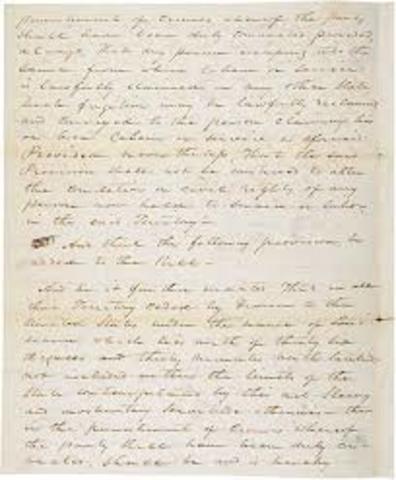 punishment of crimes whereof the party
shall have been duly convicted provided
always That any person escaping into the
same from whom labour or service
is lawfully claimed in any other State
such fugitive may be lawfully reclaimed
and conveyed to the person claiming his
or her labour or service as aforesaid
Provided nevertheless That the said
Provision shall not be construed to alter
the condition or civil rights of any
person now held to service or labor
in the said Territory
And that the following provision be
added to the Bill
And be it further enacted That in all
that Territory ceded by France to the
United States under the name of Loui
siana which lies north of thirty six
degrees and thirty minutes north latitude
not included within the limits of the
State contemplated by this act slavery
and involuntary servitude otherwise than
in the punishment of crimes whereof
the party shall have been duly con
victed, shall be and is hereby